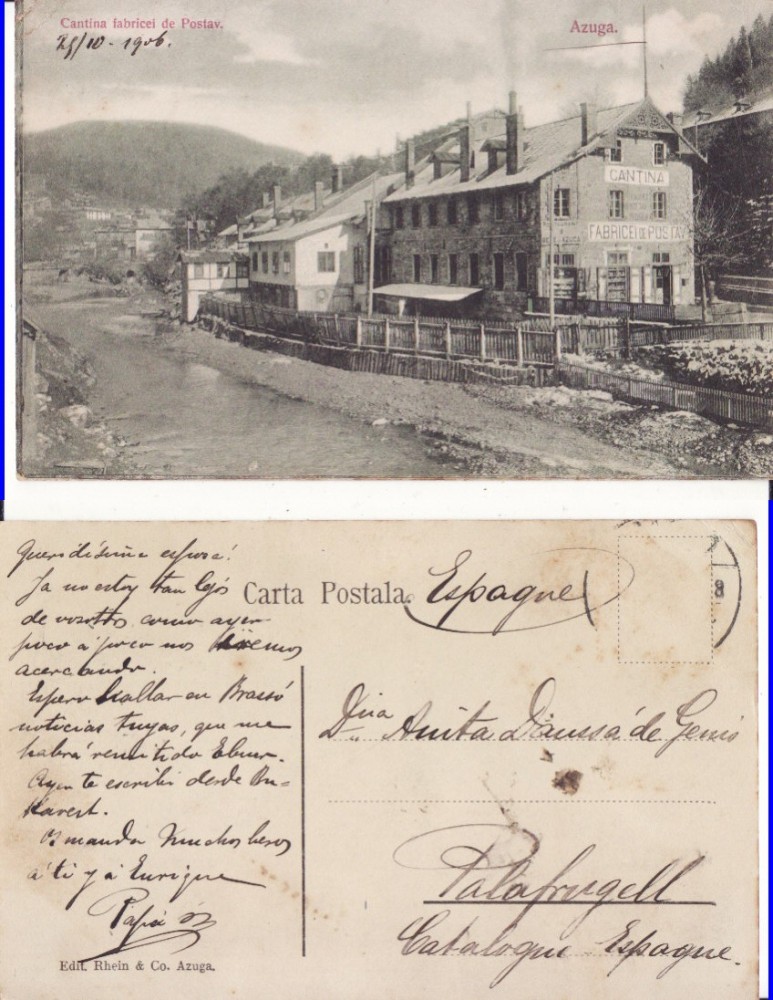 Cantina fabricei de Postav.
Azuga.
25/10 - 1906.
CANTINA
FABRICEI DE POSTAV
Queridísima esposa!
Ya no estoy tan lejós
de vosotros como ayer
poco á poco nos iremos
acercando.
Espero hallar en Brassó
noticias tuyas, que me
habrá remitido
Ayer te escribi desde Bu-
karest.
Os manda muchos besos
á ti y á Enrique
Papá
Carta Postala.
Espagne
8
Anita Daussá de Genis
Palafrugell
Catalogne Espagne.
Edit. Rhein & Co. Azuga.